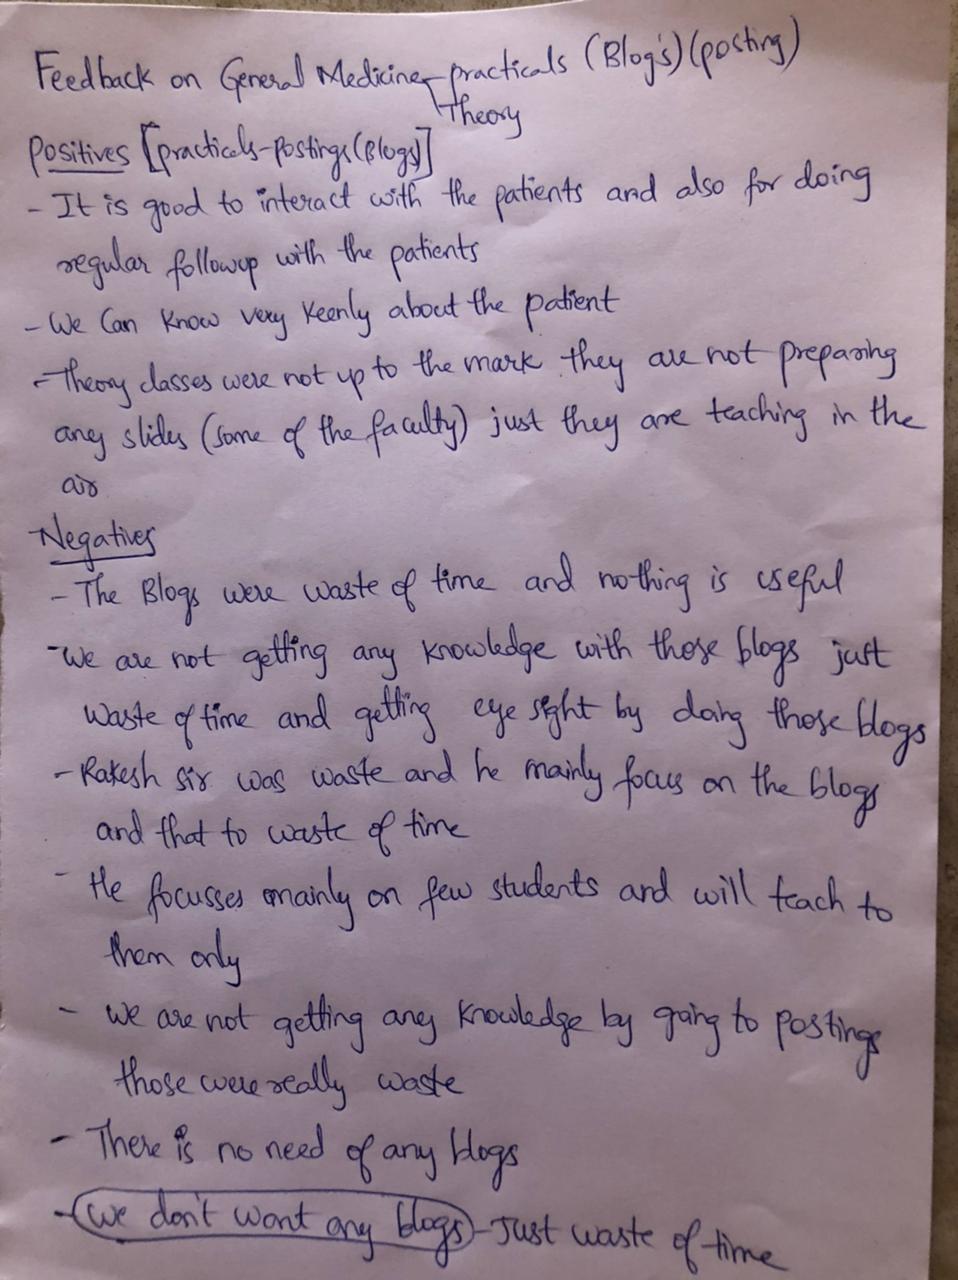 Feedback on General Medicine practicals (Blog's) (posting)
Theory
Positives [practicals-postings(Blogs)]
- It is good to interact with the patients and also for doing
regular followup with the patients
- We Can know very keenly about the patient
- Theory classes were not up to the mark they are not preparing
any slides (some of the faculty) just they are teaching in the
air
Negatives
- The Blogs were waste of time and nothing is useful
- we are not getting any knowledge with those blogs just
waste of time and getting eye sight by doing those blogs
- Rakesh sir was waste and he mainly focus on the blogs
and that to waste of time
- He focusses mainly on few students and will teach to
them only
- we are not getting any knowledge by going to postings
those were really waste
- There is no need of any blogs
- we don't want any blogs - Just waste of time